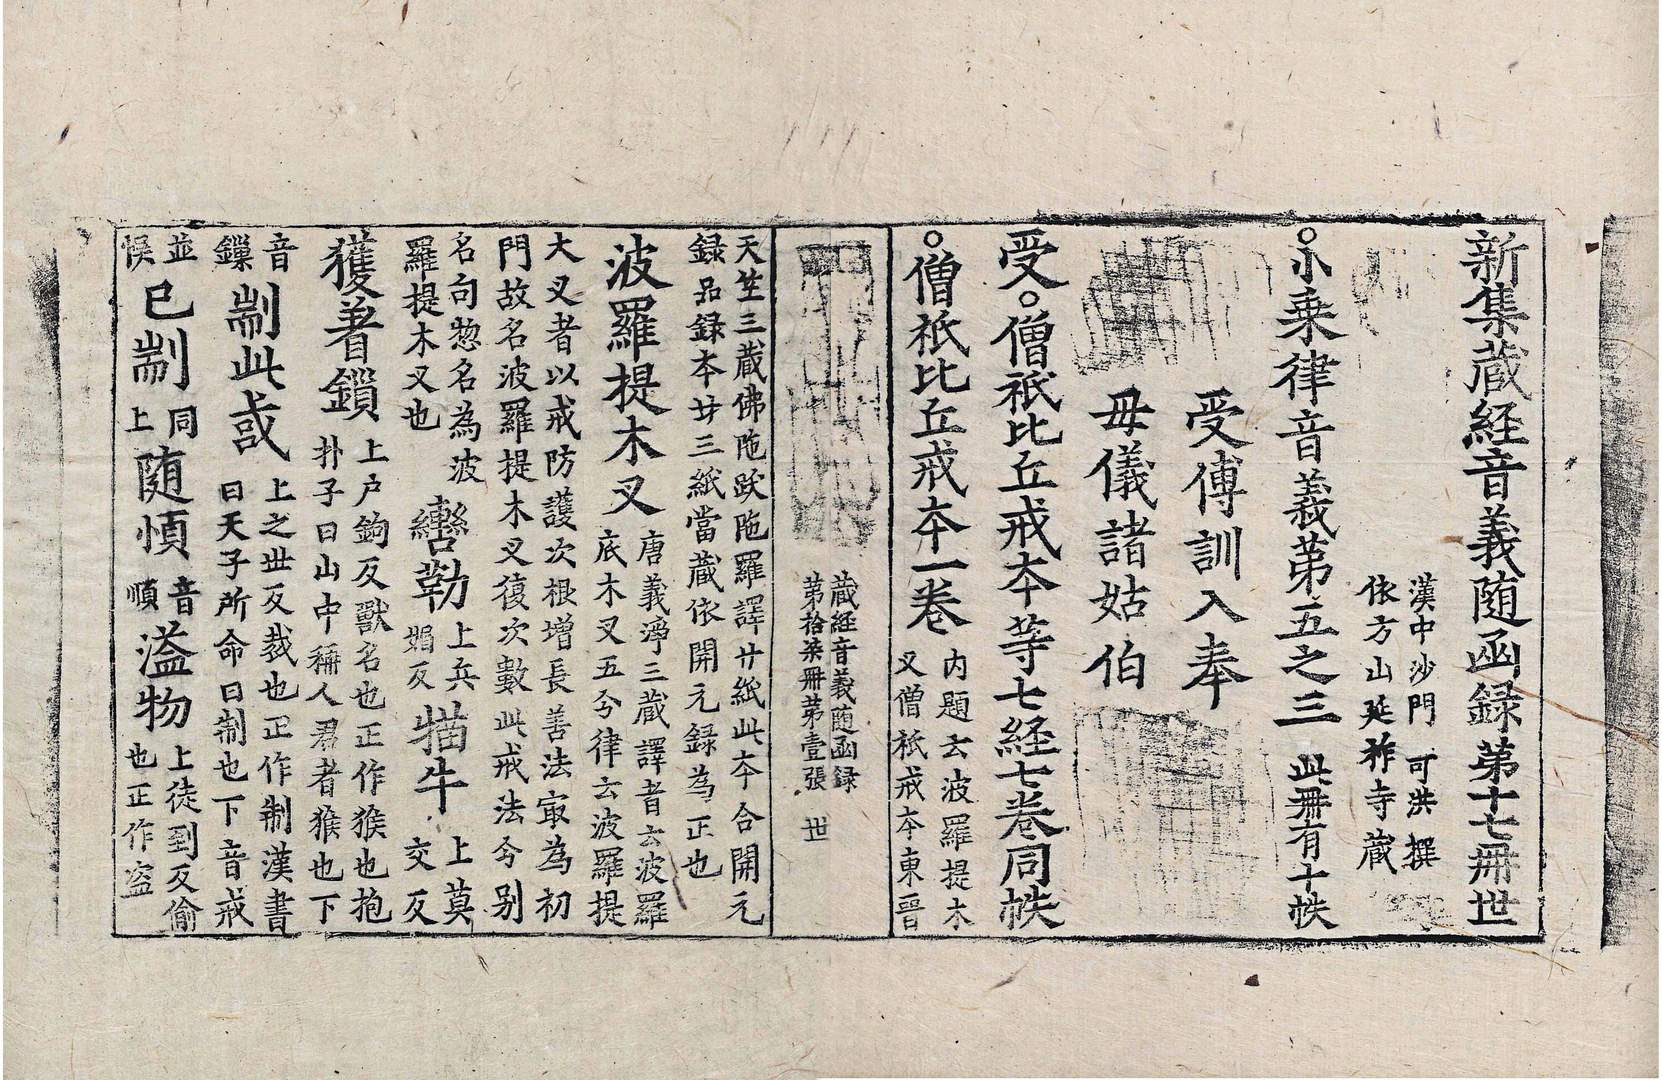 新集蔵経音義随函録第十七冊世
漢中沙門 可洪 撰
依方山延祚寺蔵
○小乗律音義第五之三 此冊有十帙
受傅訓入奉
母儀諸姑伯
受○僧祇比丘戒夲等七経七巻同帙
○僧祇比丘戒夲一巻 内題云波羅提木
又僧祇戒夲東晉
蔵經音義随函録
第拾柒冊第壹張 世
天竺三蔵佛陁跋陁羅譯廿紙此夲合開元
録品録夲廿三紙當蔵依開元録為正也
波羅提木叉 唐義淨三蔵譯者云波羅
底木叉五今律云波羅提
大叉者以戒防護次根增長善法㝡為初
門故名波羅提木叉復次數此戒法今别
名句惣名為波
羅提木叉也
轡勒 上兵
媚反
猫牛 上莫
交反
獲著鎖 上戸鉤反獸名也正作猴也抱
扑子曰山中稱人君者猴也下
音
鏁
剬此㦯 上之世反裁也正作制漢書
曰天子所命曰制也下音戒
並
悮
已剬 同
上
随愩 音
順
溢物 上徒到反偷
也正作盗